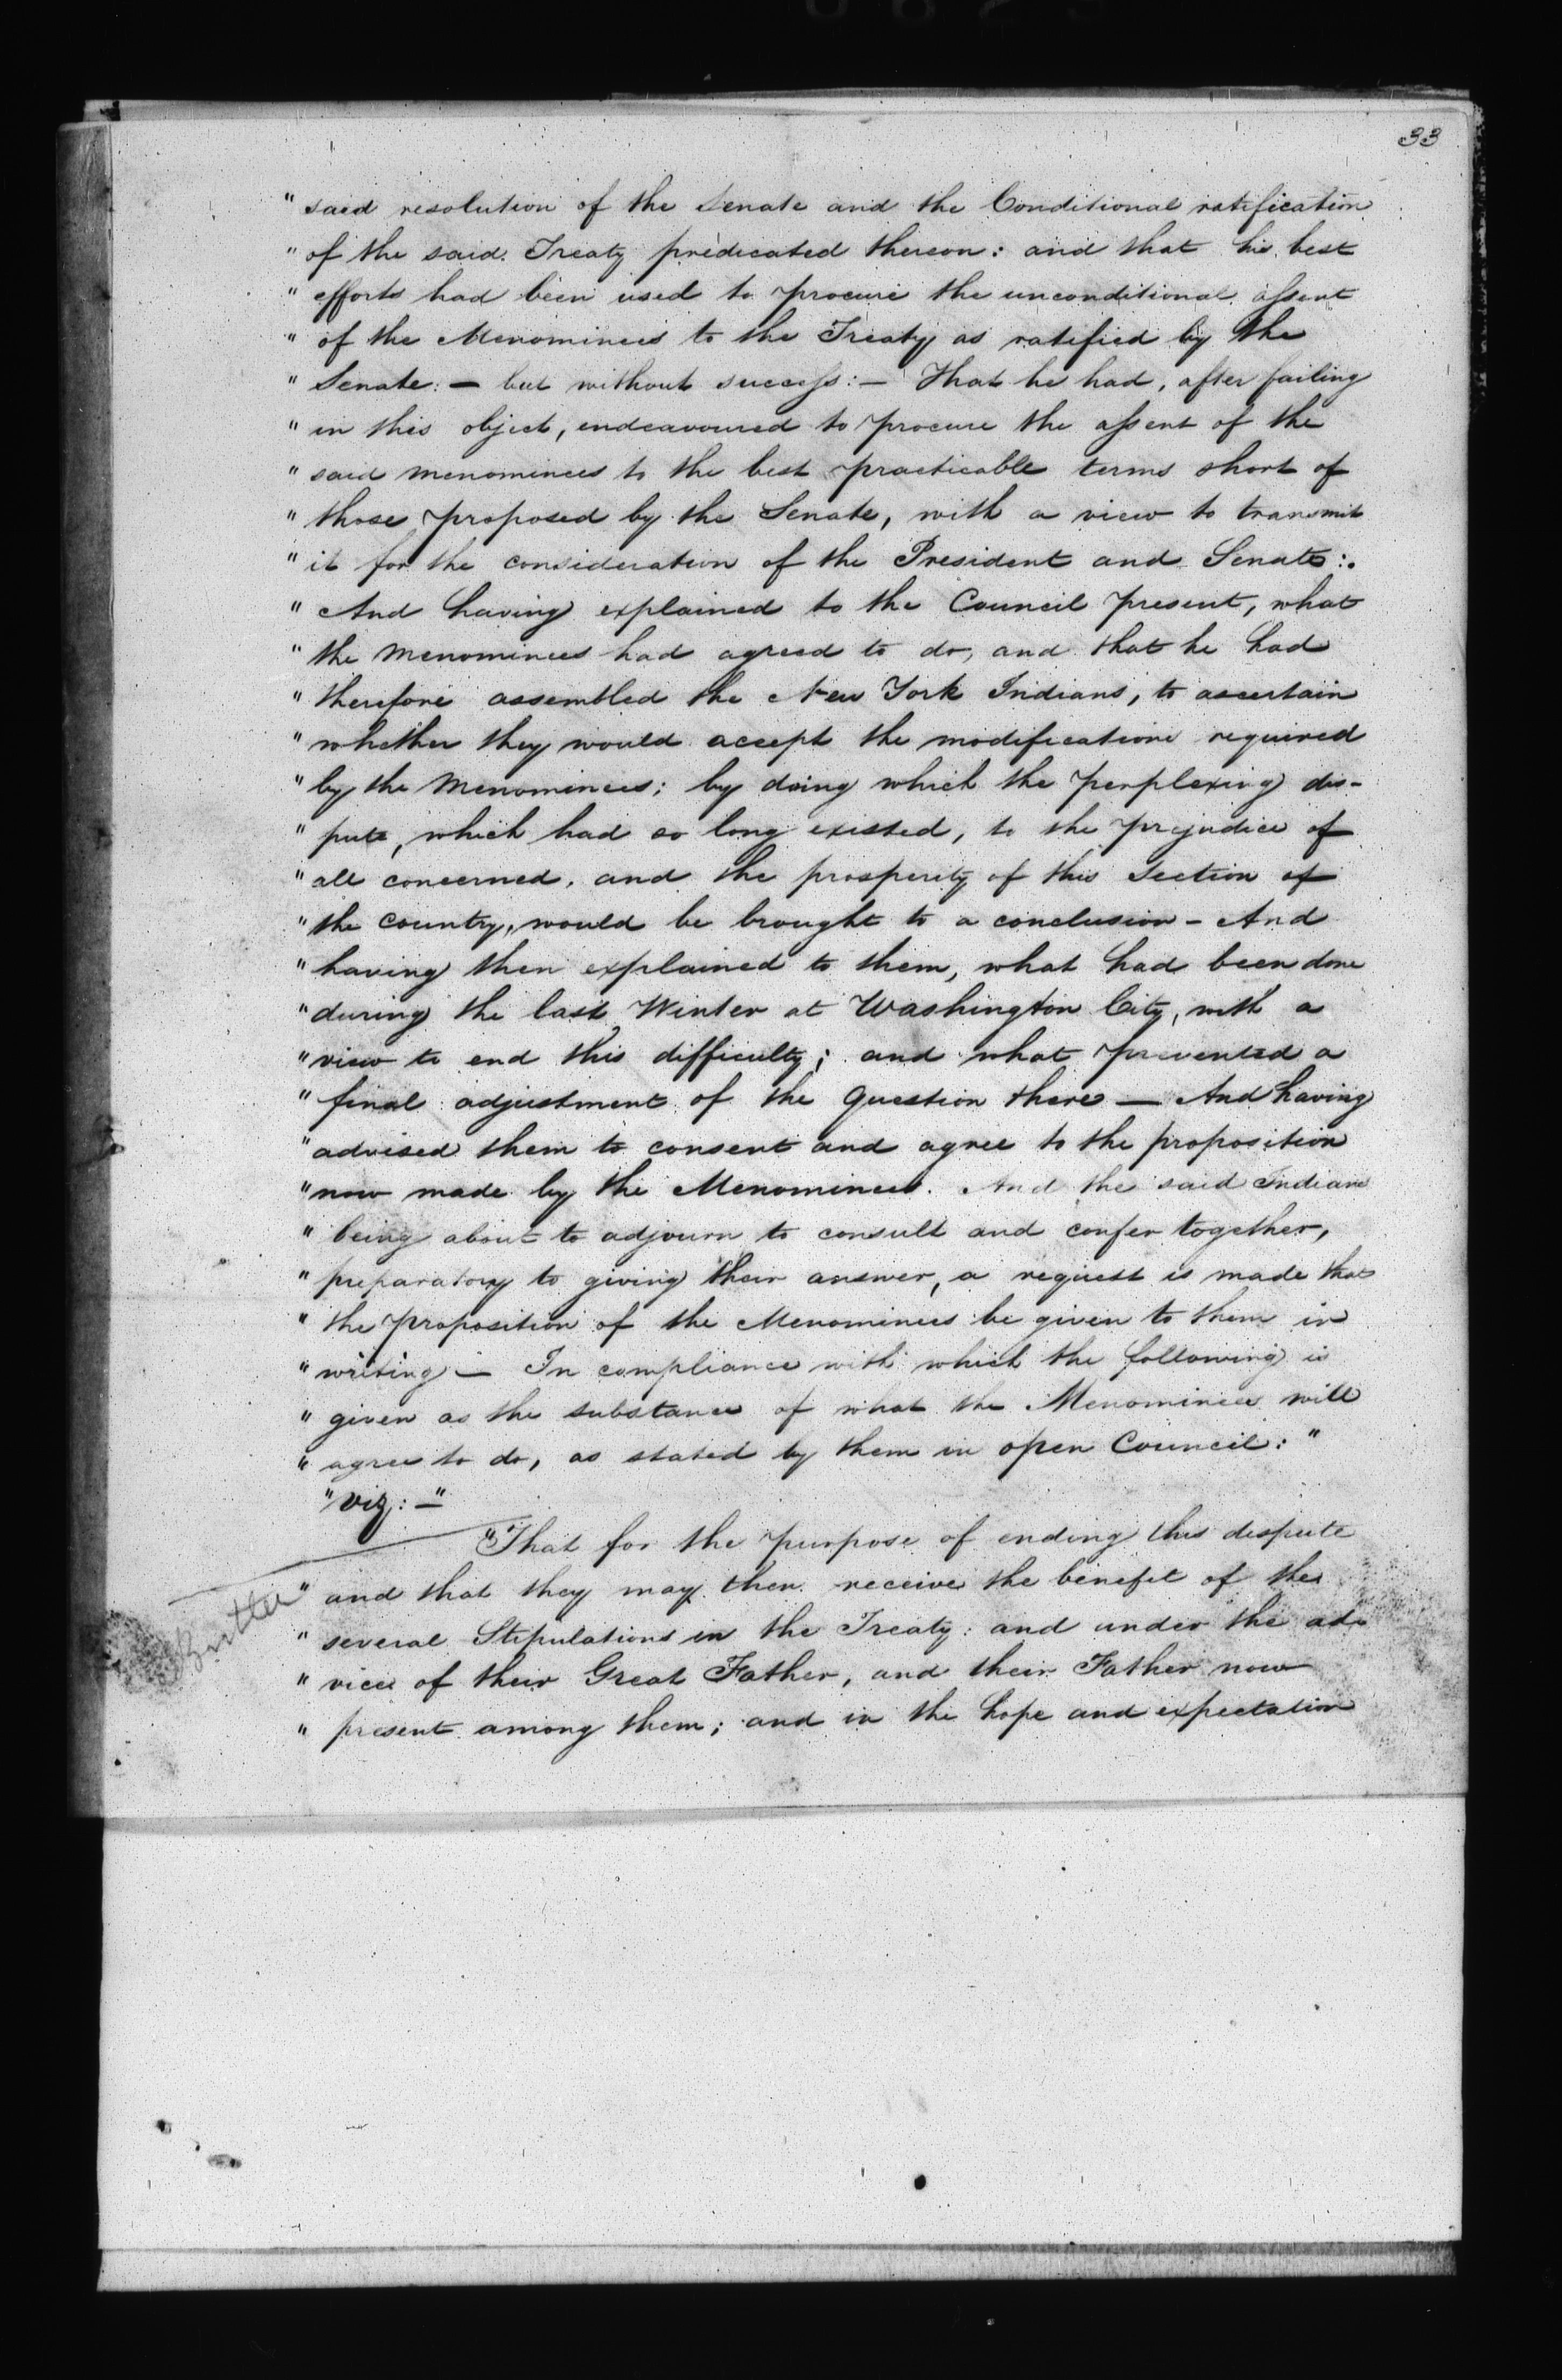 33
" said resolution of the Senate and the Conditional ratification
" of the said Treaty predicated thereon: and that his best
" efforts had been used to procure the unconditional assent
" of the Menominees to the Treaty as ratified by the
" Senate: — but without success: — That he had, after failing
" in this object, endeavoured to procure the assent of the
" said menominees to the best practicable terms short of
" those proposed by the Senate, with a view to transmit
" it for the consideration of the President and Senate:.
" And having explained to the Council present, what
" the Menominees had agreed to do, and that he had
" therefore assembled the New York Indians, to ascertain
" whether they would accept the modifications required
" by the Menominees; by doing which the perplexing dis-
" pute, which had so long existed, to the prejudice of
" all concerned, and the prosperity of this Section of
" the Country, would be brought to a conclusion - And
" having then explained to them, what had been done
" during the last Winter at Washington City, with a
" view to end this difficulty; and what prevented a
" final adjustment of the Question there — And having
" advised them to consent and agree to the proposition
" now made by the Menominees. And the said Indians
" being about to adjourn to consult and confer together,
" preparatory to giving their answer, a request is made that
" the proposition of the Menominees be given to them in
" writing — In compliance with which the following is
" given as the substance of what the Menominees will
" agree to do, as stated by them in open Council: "
" viz: — "
" That for the purpose of ending this dispute
" and that they may then receive the benefit of the
" several Stipulations in the Treaty: and under the ad-
" vice of their Great Father, and their Father now
" present among them; and in the hope and expectation